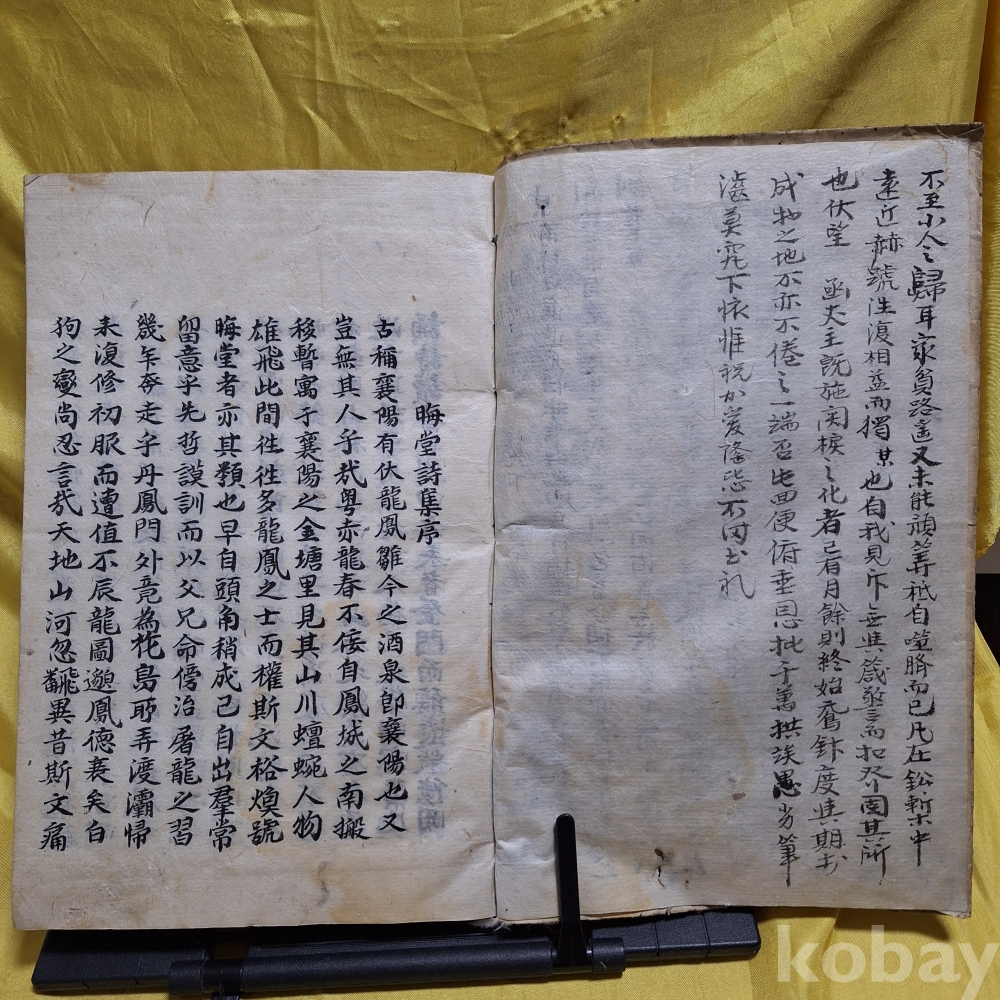 不至小人之歸耳家貧路遙又未能頑筭祗自噬臍而已凡在鈆槧中
遠近赫號往復相益而獨某也自我見斥無其箴警言而扣發固其所
也伏望 函丈主旣施閑棙之化者已有月餘則終始爲錄度其期於
成物之地不亦不倦之一端否此回便俯垂恩批千萬拱竢愚劣筆
澁莫究下懷惟祝加愛隆毖不罔書禮
晦堂詩集序
古稱襄陽有伏龍鳳雛今之酒泉卽襄陽也又
豈無其人乎哉粤赤龍春不佞自鳳城之南搬
移暫寓于襄陽之金塘里見其山川蟺蜿人物
雄飛此間徃徃多龍鳳之士而權斯文裕煥號
晦堂者亦其類也早自頭角稍成已自出羣常
留意乎先哲謨訓而以父兄命傍治屠龍之習
幾年奔走乎丹鳳門外竟為花島所弄渡灞歸
来復修初服而遭值不辰龍圖邈鳳德衰矣白
狗之變尚忍言哉天地山河忽飜異昔斯文痛
kobay